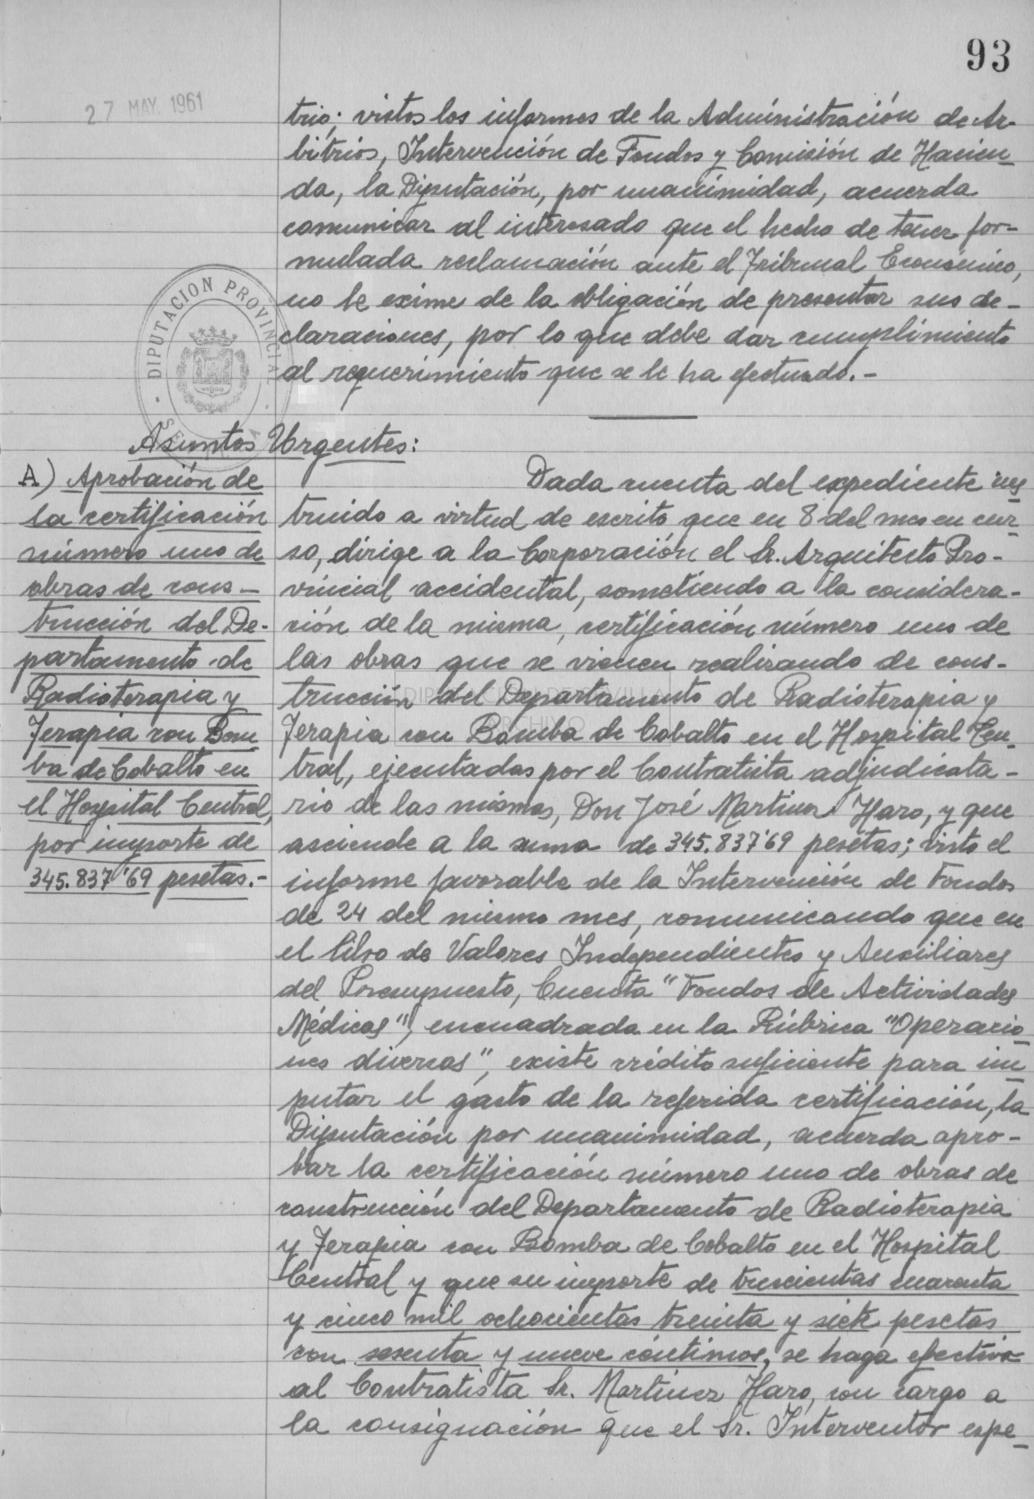 93
27 MAY. 1961
trio: vistos los informes de la Administración de Ar-
bitrios, Intervención de Fondos y Comisión de Hacien-
da, la Diputación, por unanimidad, acuerda
comunicar al interesado que el hecho de tener for-
mulada reclamación ante el Tribunal Económico,
no le exime de la obligación de presentar sus de-
claraciones, por lo que debe dar cumplimiento
al requerimiento que se le ha efectuado.-
DIPUTACION PROVINCIAL
Asuntos Urgentes:
A) Aprobación de
la certificación
número uno de
obras de cons-
trucción del De-
partamento de
Radioterapia y
Terapia con Bom-
ba de Cobalto en
el Hospital Central,
por importe de
345.837'69 pesetas.-
Dada cuenta del expediente ins
truido a virtud de escrito que en 8 del mes en cur-
so, dirige a la Corporación el Sr. Arquitecto Pro-
vincial accidental, sometiendo a la considera-
ción de la misma, certificación número uno de
las obras que se vienen realizando de cons-
trucción del Departamento de Radioterapia y
Terapia con Bomba de Cobalto en el Hospital Cen-
tral, ejecutadas por el Contratista adjudicata-
rio de las mismas, Don José Martinez Haro, y que
asciende a la suma de 345.837'69 pesetas; visto el
informe favorable de la Intervención de Fondos
de 24 del mismo mes, comunicando que en
el libro de Valores Independientes y Auxiliares
del Presupuesto, Cuenta "Fondos de Actividades
Médicas", encuadrada en la Rúbrica "Operacio-
nes diversas", existe crédito suficiente para im-
putar el gasto de la referida certificación, la
Diputación por unanimidad, acuerda apro-
bar la certificación número uno de obras de
construcción del Departamento de Radioterapia
y Terapia con Bomba de Cobalto en el Hospital
Central y que su importe de trescientas cuarenta
y cinco mil ochocientas treinta y siete pesetas
con sesenta y nueve céntimos, se haga efectivo
al Contratista Sr. Martinez Haro, con cargo a
la consignación que el Sr. Interventor espe-